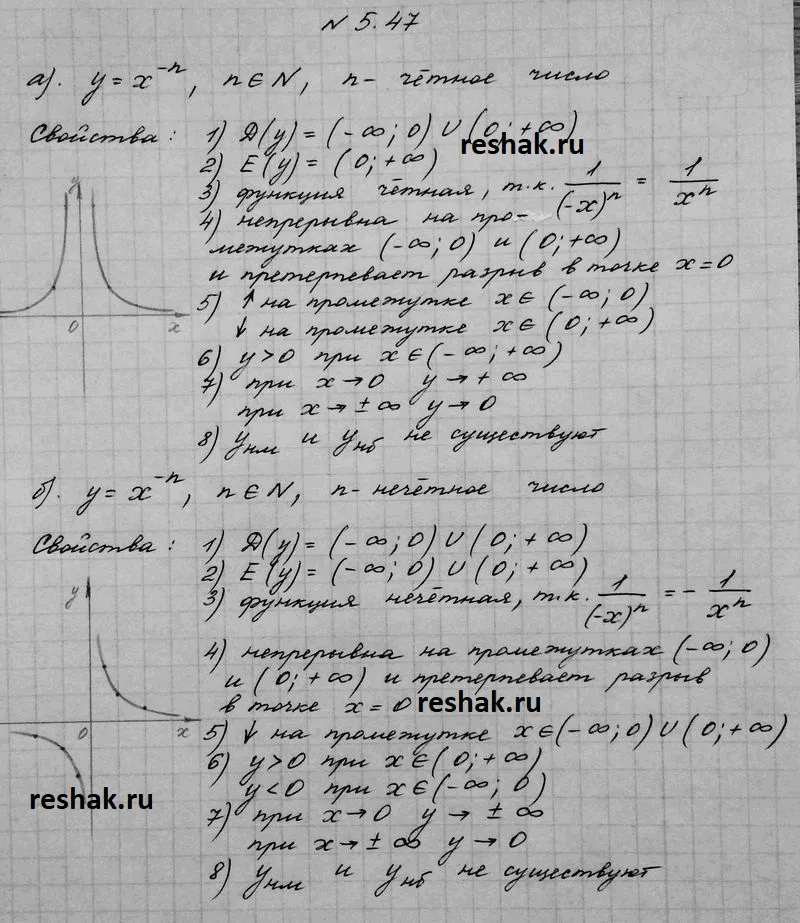 № 5.47
а). y = x⁻ⁿ, n ∈ N, n - чётное число
Свойства: 1) Д(y) = (-∞; 0) ∪ (0; +∞)
reshak.ru
2) E(y) = (0; +∞)
3) функция чётная, т.к. 1/(-x)ⁿ = 1/xⁿ
4) непрерывна на про-
межутках (-∞; 0) и (0; +∞)
и претерпевает разрыв в точке x = 0
5) ↑ на промежутке x ∈ (-∞; 0)
↓ на промежутке x ∈ (0; +∞)
6) y > 0 при x ∈ (-∞; +∞)
7) при x → 0 y → +∞
при x → ±∞ y → 0
8) yнм и yнб не существуют
y
0
x
б). y = x⁻ⁿ, n ∈ N, n - нечётное число
Свойства: 1) Д(y) = (-∞; 0) ∪ (0; +∞)
2) E(y) = (-∞; 0) ∪ (0; +∞)
3) функция нечётная, т.к. 1/(-x)ⁿ = - 1/xⁿ
4) непрерывна на промежутках (-∞; 0)
и (0; +∞) и претерпевает разрыв
в точке x = 0
reshak.ru
5) ↓ на промежутке x ∈ (-∞; 0) ∪ (0; +∞)
6) y > 0 при x ∈ (0; +∞)
y < 0 при x ∈ (-∞; 0)
7) при x → 0 y → ±∞
при x → ±∞ y → 0
8) yнм и yнб не существуют
y
0
x
reshak.ru